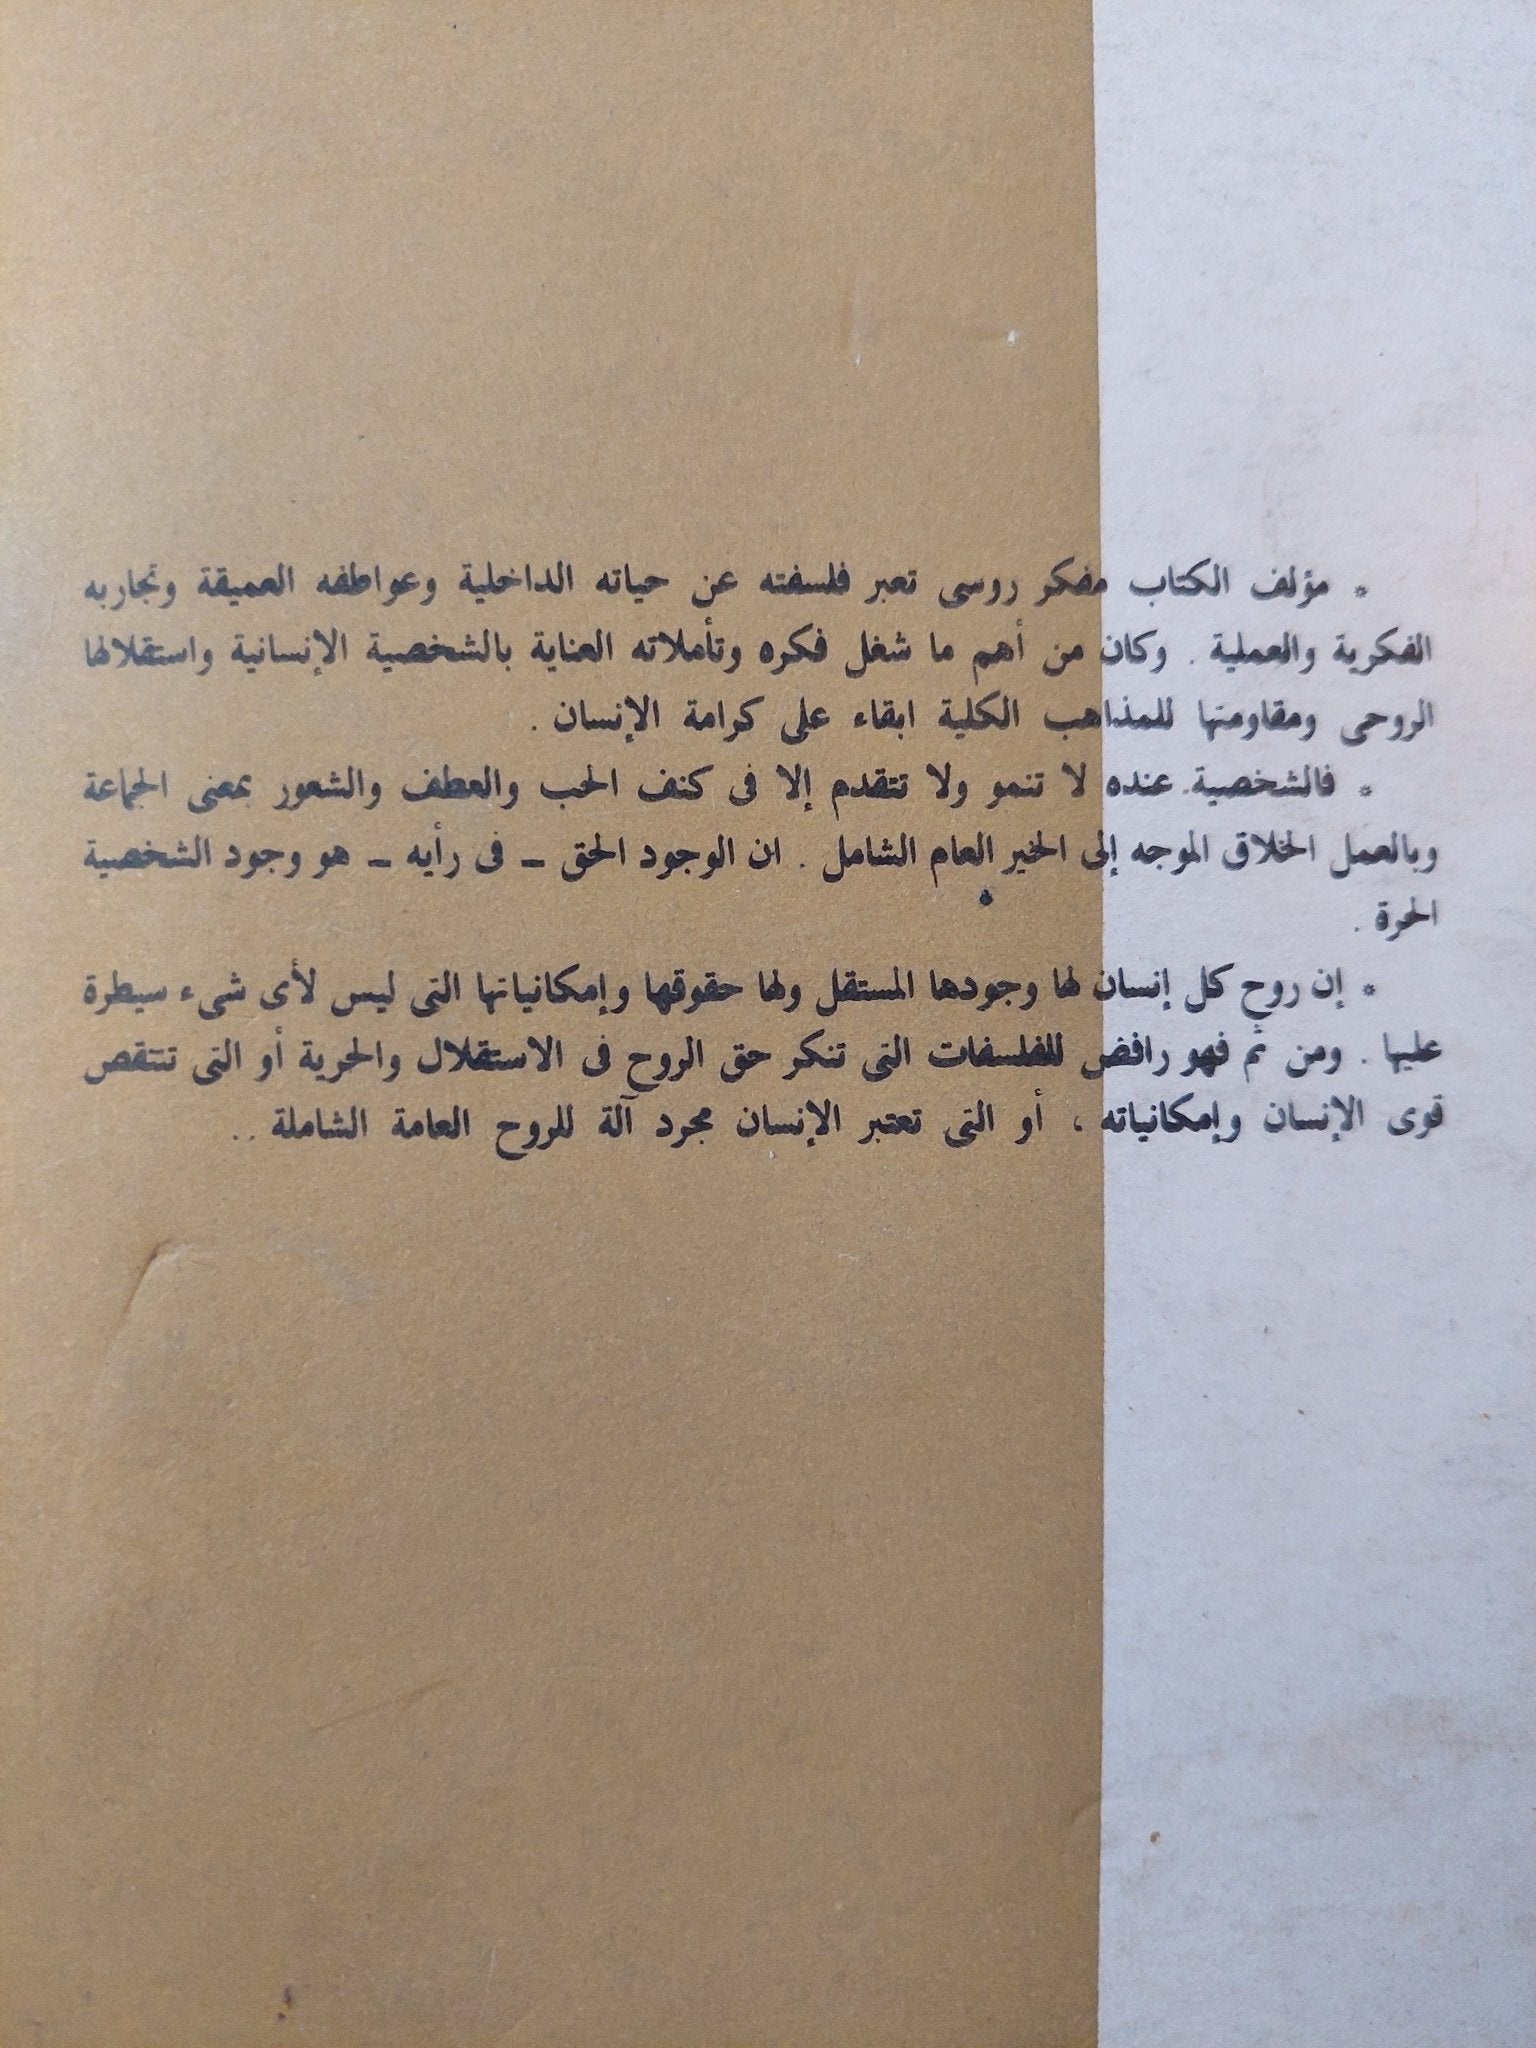 * مؤلف الكتاب مفكر روسى تعبر فلسفته عن حياته الداخلية وعواطفه العميقة وتجاربه
الفكرية والعملية . وكان من أهم ما شغل فكره وتأملاته العناية بالشخصية الإنسانية واستقلالها
الروحى ومقاومتها للمذاهب الكلية ابقاء على كرامة الإنسان .
* فالشخصية عنده لا تنمو ولا تتقدم إلا فى كنف الحب والعطف والشعور بمعنى الجماعة
وبالعمل الخلاق الموجه إلى الخير العام الشامل . ان الوجود الحق – فى رأيه – هو وجود الشخصية
الحرة .
* إن روح كل إنسان لها وجودها المستقل ولها حقوقها وإمكانياتها التى ليس لأى شىء سيطرة
عليها . ومن ثم فهو رافض للفلسفات التى تنكر حق الروح فى الاستقلال والحرية أو التى تنتقص
قوى الإنسان وإمكانياته ، أو التى تعتبر الإنسان مجرد آلة للروح العامة الشاملة ..